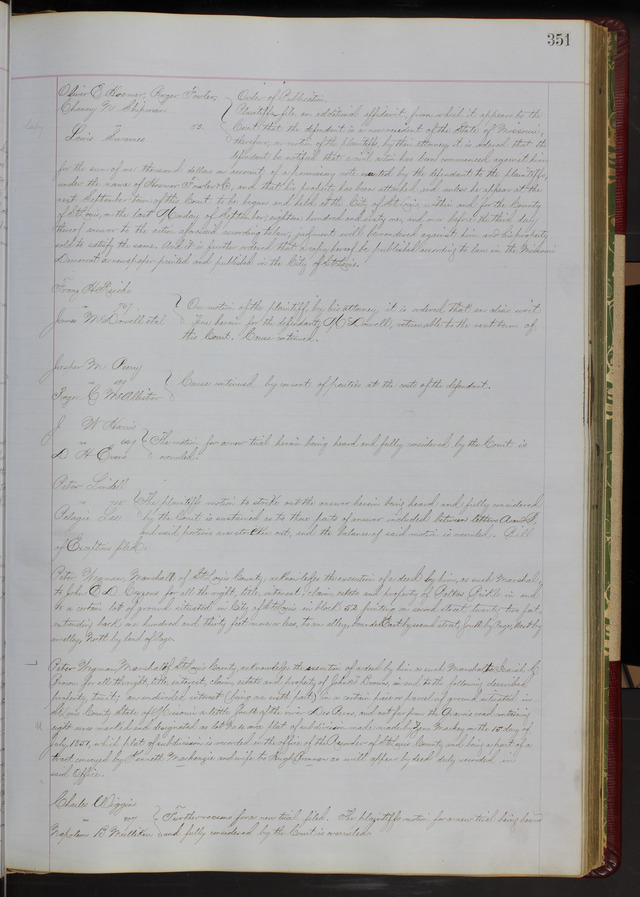 351
Oliver C. Horner, Roger Fowler,
Chancy M. Shipman
vs.
Louis
Order of Publication.
Plaintiffs file an additional affidavit, from which it appears to the
Court that the defendant is a non resident of the State of Missouri,
therefore, on motion of the plaintiffs, by their attorney, it is ordered that the
defendant be notified that a civil action has been commenced against him
for the sum of one thousand dollars on account of a promissory note executed by the defendant to the plaintiffs,
under the name of Horner Fowler & Co, and that his property has been attached, and unless he appear at the
next September term of this Court to be begun and held at the City of St. Louis, within and for the County
of St. Louis, on the last Monday of September, eighteen hundred and sixty one, and on or before the third day
thereof answer to the action aforesaid according to law, judgment will be rendered against him and his property
sold to satisfy the same. And it is further ordered that a copy hereof be published according to law in the Missouri
Democrat a newspaper printed and published in the City of St. Louis.
Franz
James McDowell et al
On motion of the plaintiff, by his attorney, it is ordered that an alias writ
issue herein for the defendant, McDowell, returnable to the next term of
this Court. Cause continued.
M. Perry
C. McAllister
Cause continued by consent of parties at the costs of the defendant.
J. W. Harris
D. H. Evans
The motion for a new trial herein being heard and fully considered by the Court is
overruled.
Peter Lindell
Pelagie Lee
The plaintiff's motion to strike out the answer herein being heard and fully considered
by the Court is sustained as to those parts of answer included between letters A and
and said portions are stricken out, and the balance of said motion is overruled. Bill
of Exceptions filed.
Peter Wegman, Marshall of St. Louis County, acknowledges the execution of a deed by him, as such Marshal,
to John O. D. for all the right, title, interest, claim, estate and property of in and
to a certain lot of ground situated in City of St. Louis in block 52 fronting on second street twenty two feet
extending back one hundred and thirty feet more or less, to an alley, bounded East by second street, South by West by
an alley, North by land of
Peter Wegman, Marshal of St. Louis County, acknowledges the execution of a deed by him as such Marshal to Josiah G.
Brown for all the right, title, interest, claim, estate and property of in and to the following described
property, to wit; an undivided interest (being one sixth part) in a certain piece or parcel of ground situated in
St. Louis County State of Missouri a little South of the river Des Peres, and not far from the Gravois road containing
eight acres marked and designated as lot No on a plat of subdivision made by Mackay on the 15 day of
July 1851, which plat of subdivision is recorded in the office of the Recorder of St. Louis County and being a part of a
tract conveyed by Kenneth Mackenzie and wife to Hugh as will appear by deed duly recorded in
said Office.
Charles Wiggin
Napoleon B. Milliken
Further reasons for a new trial filed. The plaintiffs motion for a new trial being heard
and fully considered by the Court is overruled.